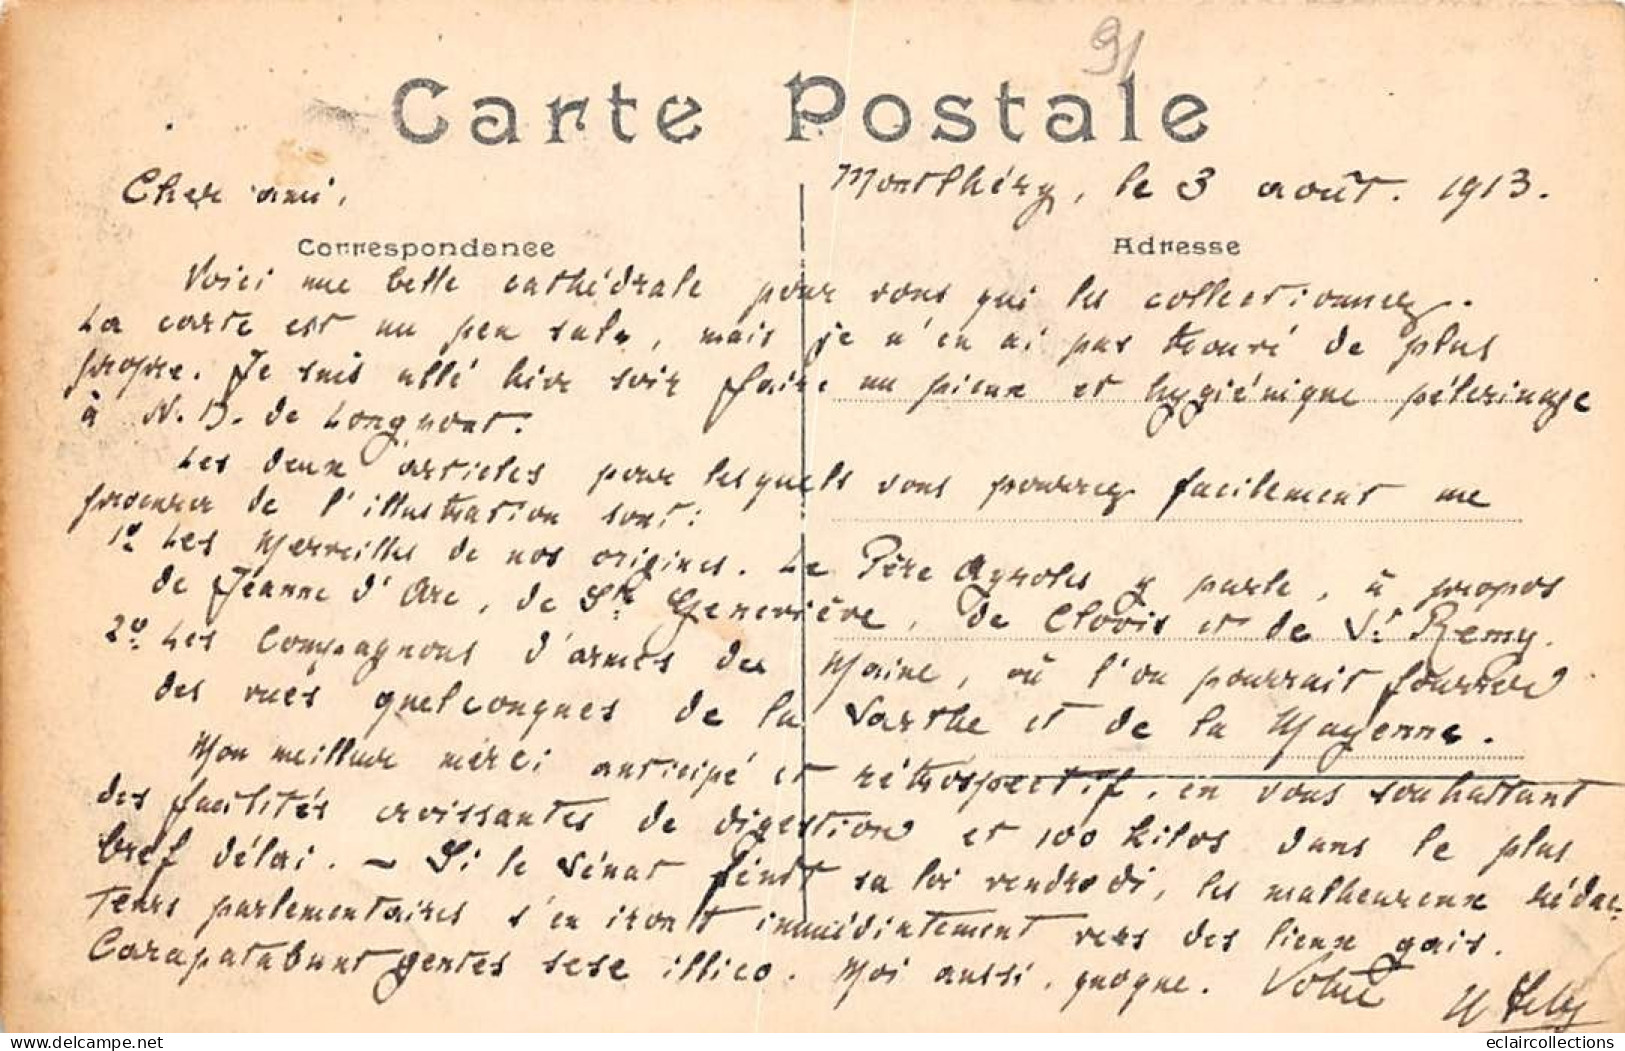 91
Carte Postale
Cher ami,
Montlhéry, le 3 août. 1913.
Correspondance
Adresse
Voici une belle cathédrale pour vous qui les collectionnez.
La carte est un peu sale, mais je n'en ai pas trouvé de plus
propre. Je suis allé hier soir faire un pieux et hygiénique pélerinage
à N. D. de Longpont.
Les deux articles pour lesquels vous pourrez facilement me
procurer de l'illustration sont:
1º Les Merveilles de nos origines. Le Père y parle, à propos
de Jeanne d'Arc, de Ste Geneviève, de Clovis et de St Remy.
2º Les Compagnons d'armes du Maine, où l'on pourrait fourrer
des vues quelconques de la Sarthe et de la Mayenne.
Mon meilleur merci anticipé et rétrospectif, en vous souhaitant
des facilités croissantes de digestion et 100 kilos dans le plus
bref délai. - Si le Sénat finit sa loi vendredi, les malheureux rédac-
teurs parlementaires s'en iront immédiatement vers des lieux gais.
Carapatabunt gentes sese illico. Moi aussi, quoque. Votre
eclaircollections